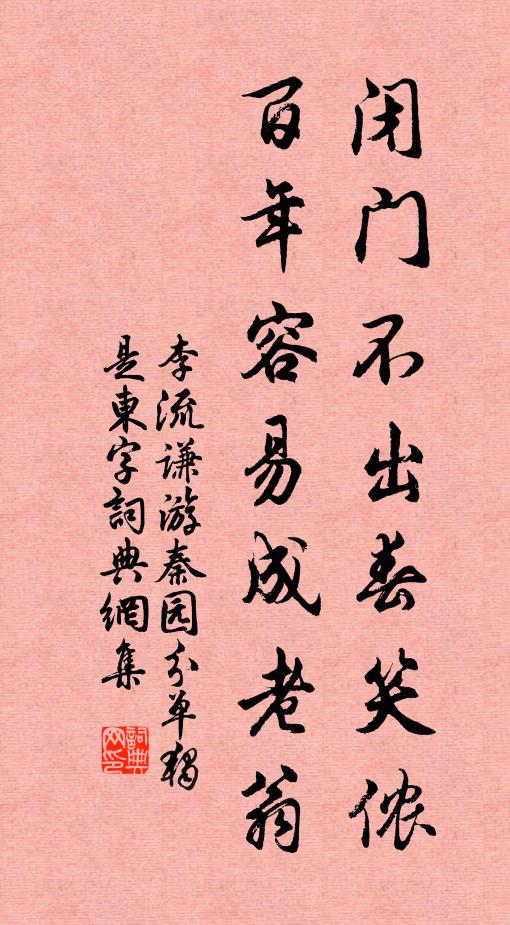 闭门不出春笑侬
百年容易成老翁
李流谦游秦园分单獨
是東字詞典網集
詞典网印